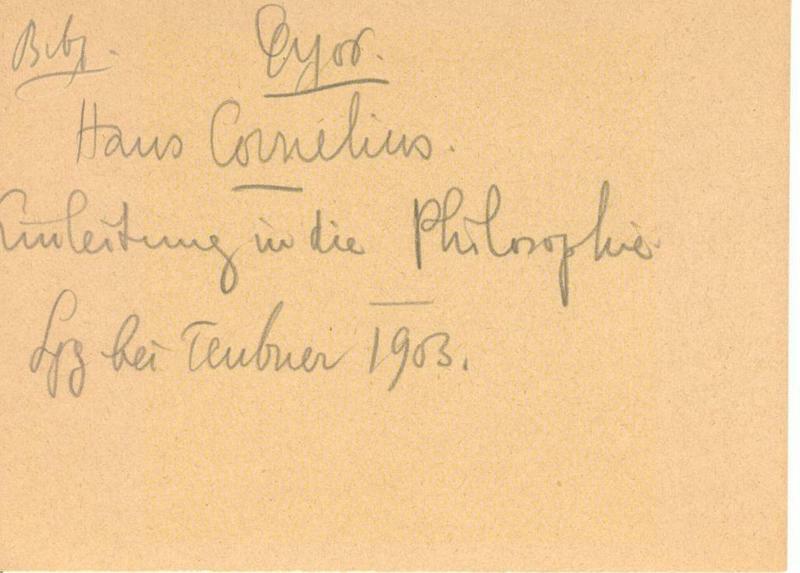 Hans Cornelius.
Einleitung in die Philosophie
Lpz bei Teubner 1903.